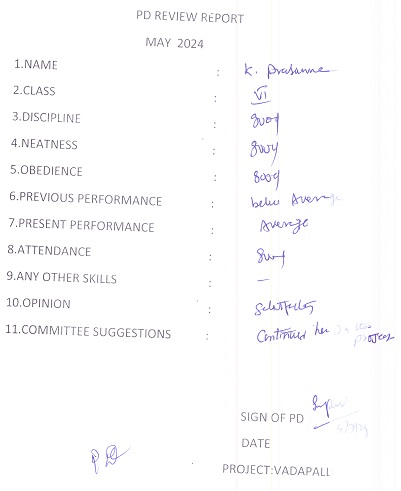 PD REVIEW REPORT
MAY 2024
1.NAME : K. Prasanna
2.CLASS : VI
3.DISCIPLINE : good
4.NEATNESS : good
5.OBEDIENCE : good
6.PREVIOUS PERFORMANCE : below Average
7.PRESENT PERFORMANCE : Average
8.ATTENDANCE : good
9.ANY OTHER SKILLS : —
10.OPINION :
11.COMMITTEE SUGGESTIONS : her project
SIGN OF PD
DATE
PROJECT:VADAPALL